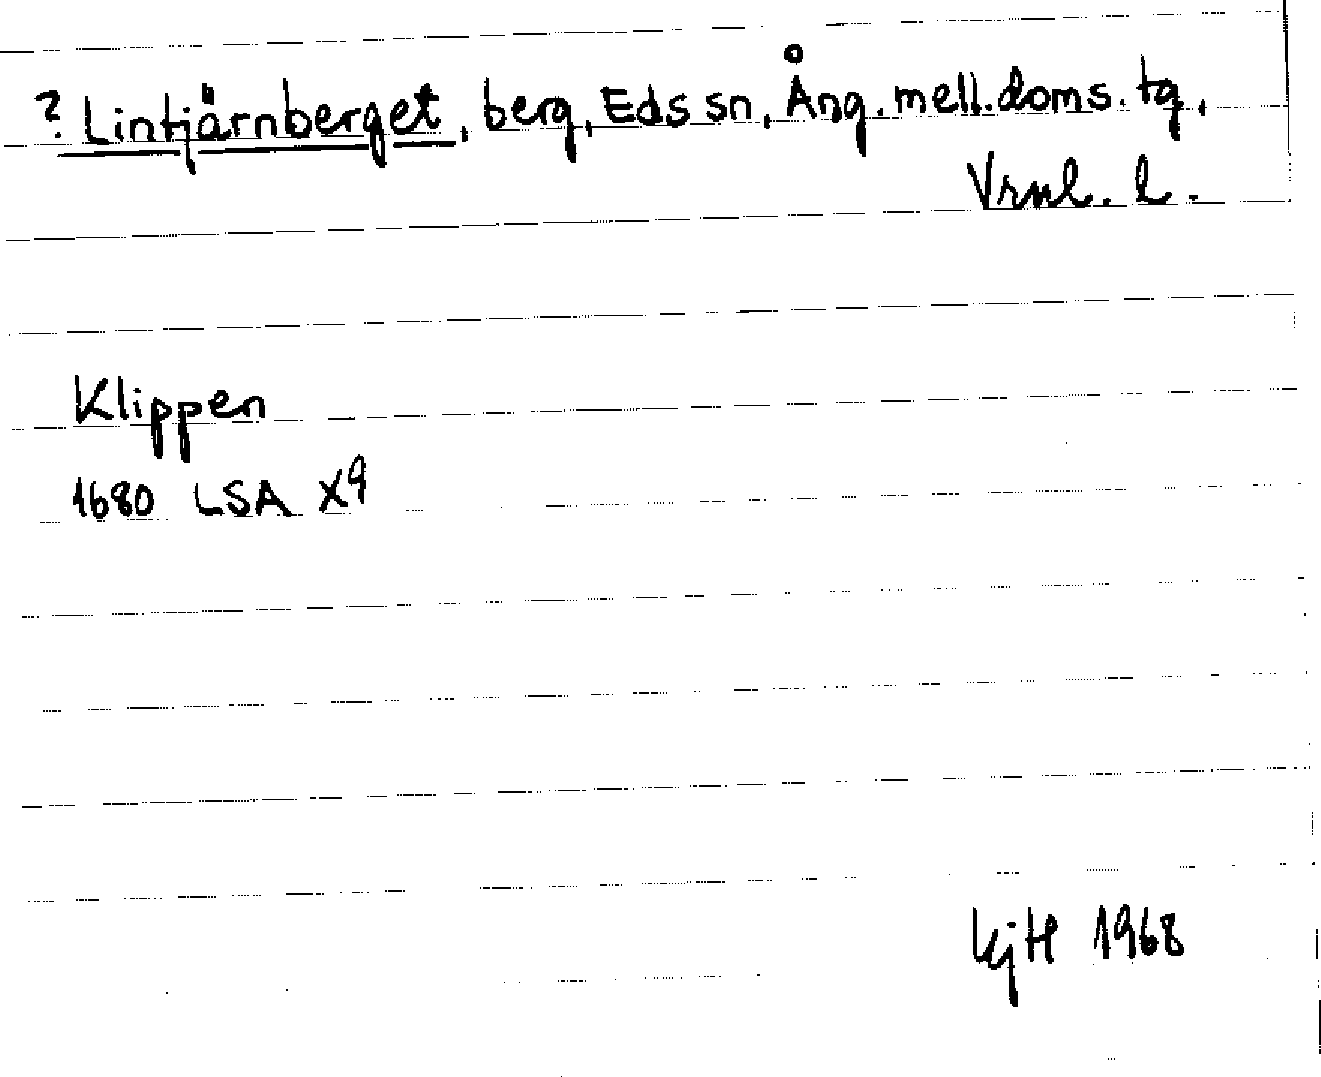 ? Lintjärnberget, berg, Eds sn, Ång. mell. doms. tg,
Vrml. l.
Klippen
1680 LSA X9
KjH 1968